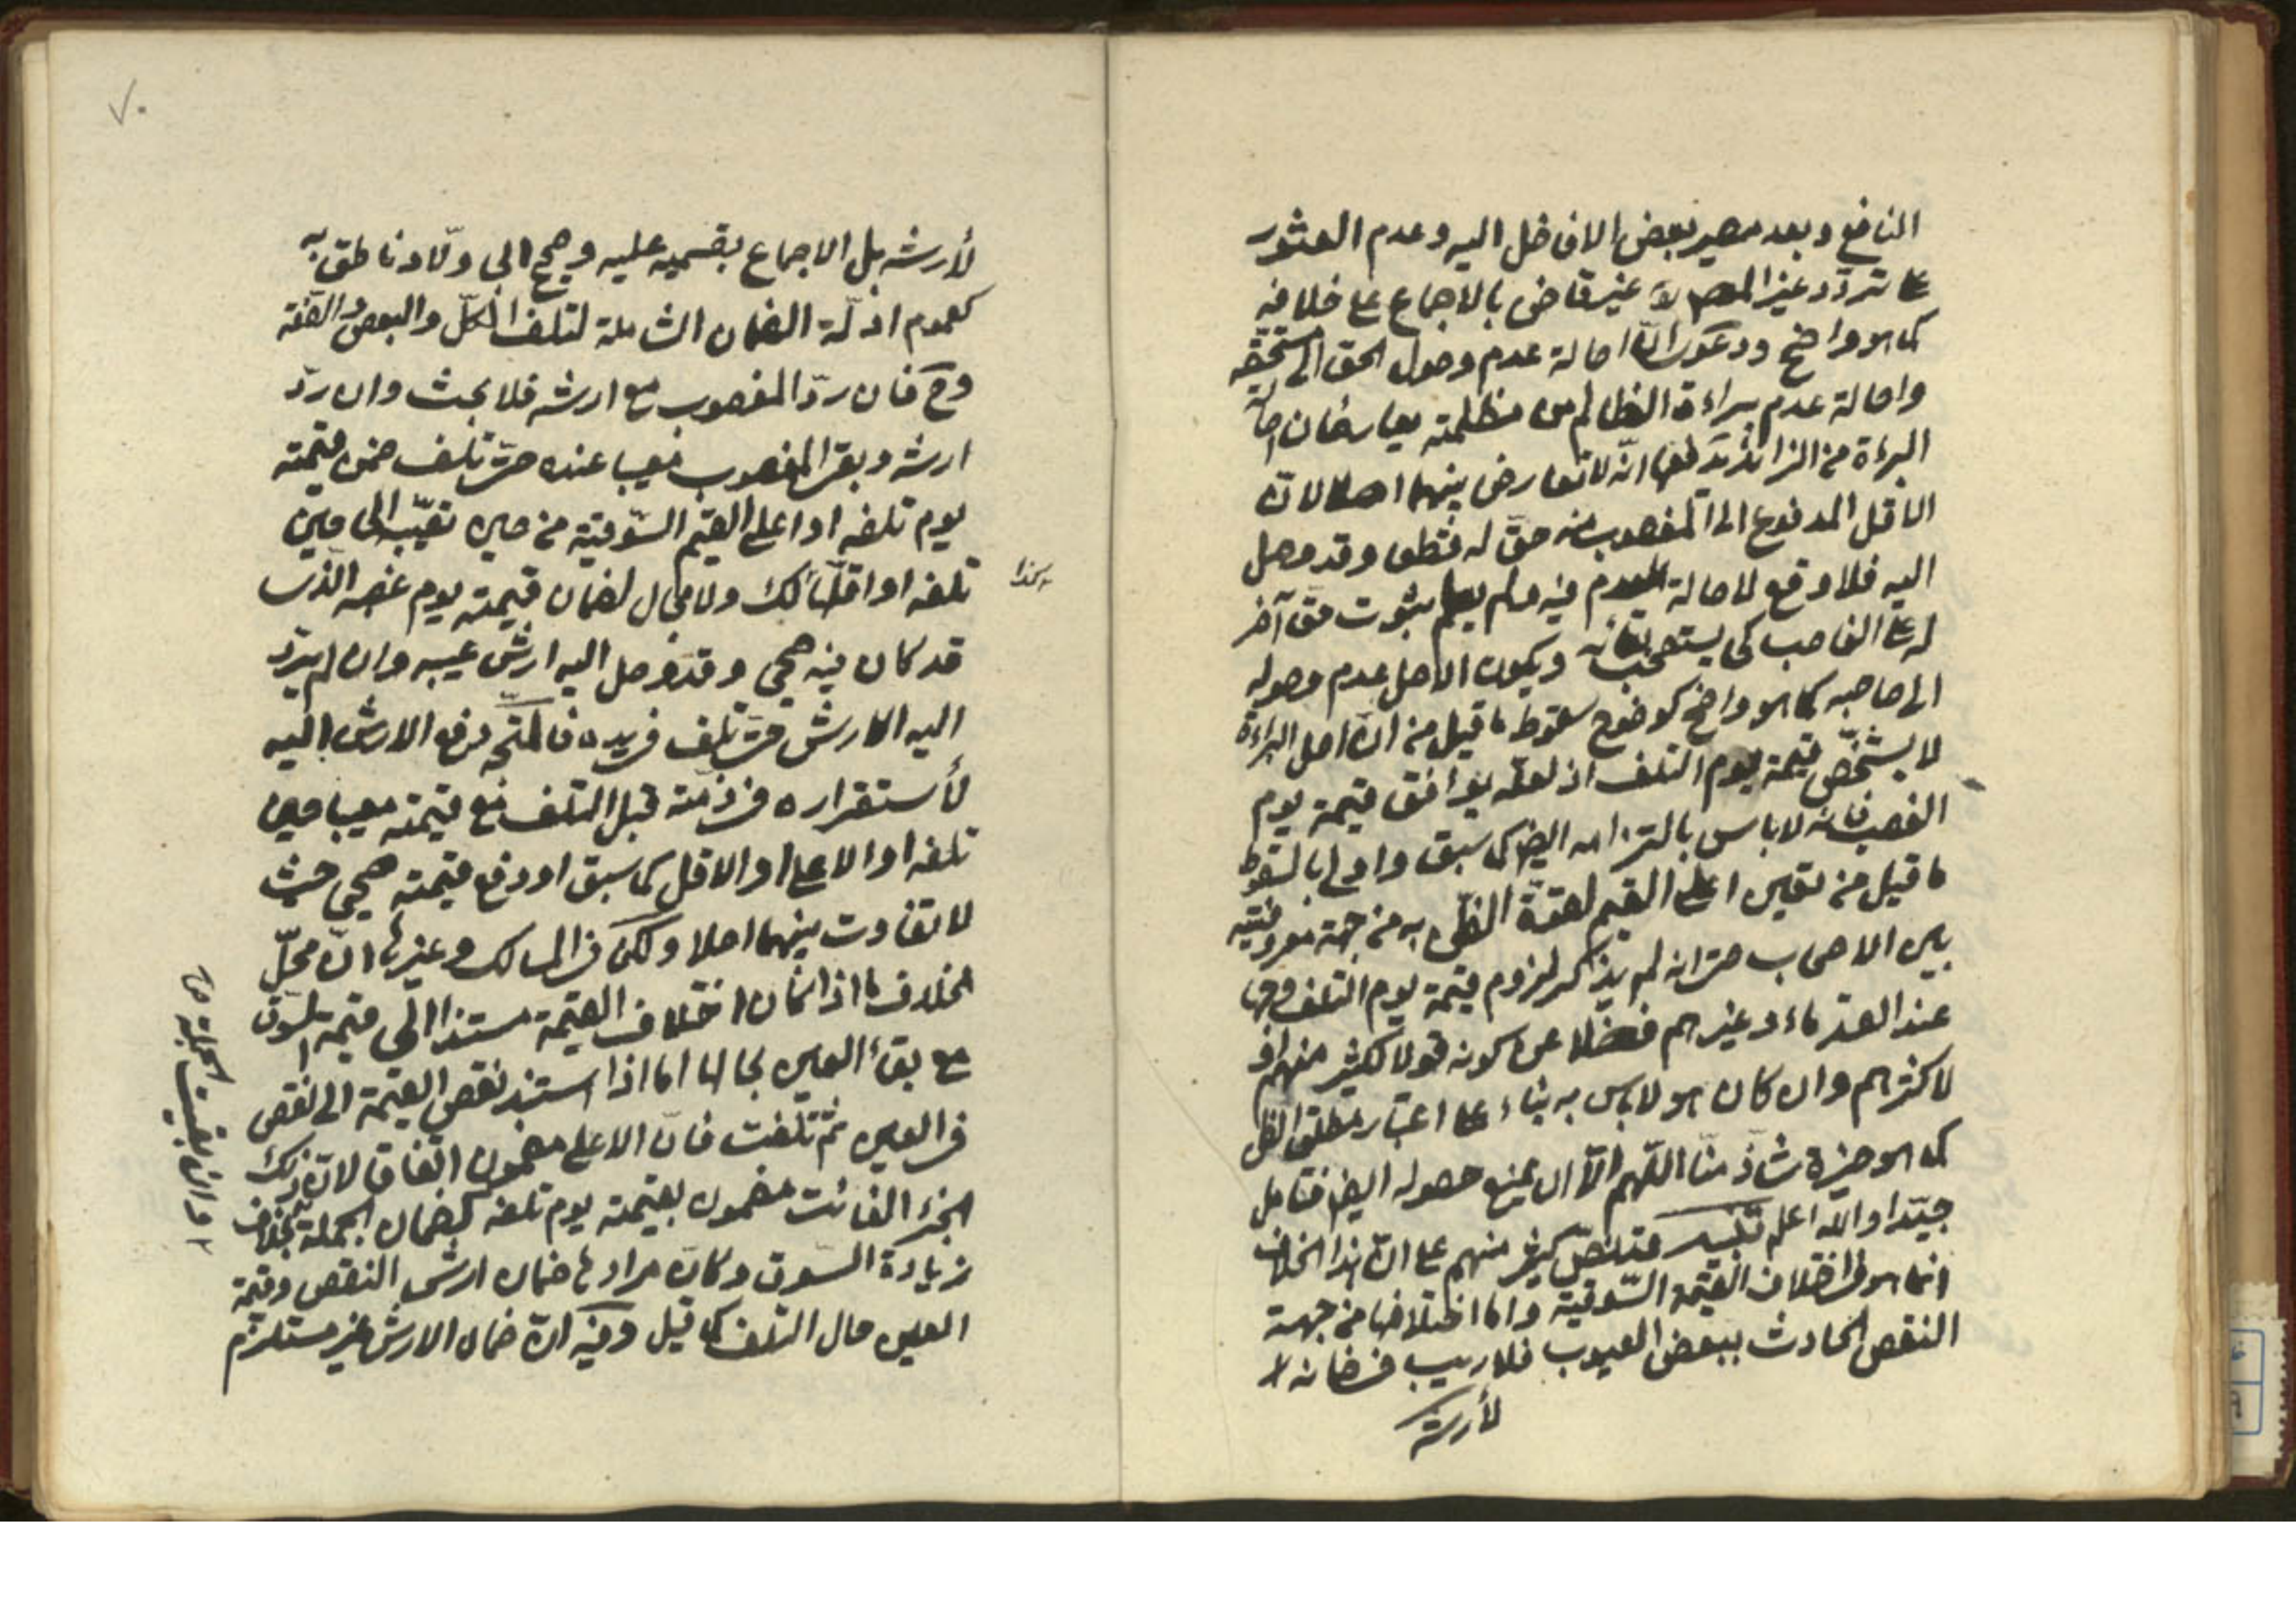 النافع وبعد مصير بعض الافاضل اليه وعدم العثور
على تردد غير المصر لا غير قاض بالاجماع على خلافه
كما هو واضح ودعوى انّ اصالة عدم وصول الحق الى مستحقه
واصالة عدم براءة الظالم من مظلمته يعارضان اصالة
البراءة من الزائد يدفعها انّه لا تعارض بينهما اصلا لانّ
الاقل المدفوع الى المغصوب منه حق له قطعا وقد وصل
اليه فلا وقع لاصالة العدم فيه ولم يعلم ثبوت حق آخر
له على الغاصب كى يستصحب بقائه ويكون الاصل عدم وصوله
الى صاحبه كما هو واضح كوضوح سقوط ما قيل من انّ اصل البراءة
لا يشخّص قيمة يوم التلف اذ لعلّه يوافق قيمة يوم
الغصب فانه لا باس بالتزامه ايضا كما سبق واولى بالسقوط
ما قيل من تعين اعلى القيم لقوة الظن به من جهة معروفيته
بين الاصحاب حتى انه لم يذكر لزوم قيمة يوم التلف وجها
عند القدماء وغيرهم فضلا عن كونه قولا لكثير منهم او
لاكثرهم وان كان هو لا باس به بناء على اعتبار مطلق الظن
كما هو خيرة شاذ منّا اللّهم الّا ان يمنع حصوله ايضا فتامل
جيّدا واللّه اعلم تنبيه قد نصّ كثير منهم على انّ هذا الخلاف
انما هو في اختلاف القيمة السّوقية واما اختلافها من جهة
النقص الحادث ببعض العيوب فلا ريب في ضمانه لا
لأرشه
لأرشه بل الاجماع بقسميه عليه وصحيح ابى ولّاد ناطق به
كعموم ادلّة الضمان الشاملة لتلف الكلّ والبعض والصّفة
وح فان ردّ المغصوب مع ارشه فلا بحث وان ردّ
ارشه وبقى المغصوب معيبا عنده حتى تلف ضمن قيمته
يوم تلفه او اعلى القيم السّوقية من حين تعيّب الى حين
تلفه او اقلّها كك ولا مجال لضمان قيمته يوم غصبه الذى
هكذا
قد كان فيه صحيحا وقد وصل اليه ارش عيبه وان لم يردّ
اليه الارش حتى تلف في يده فالمتجه دفع الارش اليه
لأستقراره في ذمته قبل التلف مع قيمته معيبا حين
تلفه او الاعلى او الاقل كما سبق او دفع قيمته صحيحا حيث
لا تفاوت بينهما اصلا ولكن في المسالك وغيرها انّ محلّ
الخلاف ما اذا كان اختلاف القيمة مستندا الى قيمة السّوق
مع بقاء العين بحالها اما اذا استند نقص القيمة الى نقص
في العين ثم تلفت فانّ الاعلى مضمون اتّفاقا لانّ ذلك
الجزء الفائت مضمون بقيمته يوم تلفه كضمان الجملة بخلاف
زيادة السّوق وكانّ مرادها ضمان ارش النقص وقيمة
العين حال التلف كما قيل وفيه انّ ضمان الارش غير مستلزم